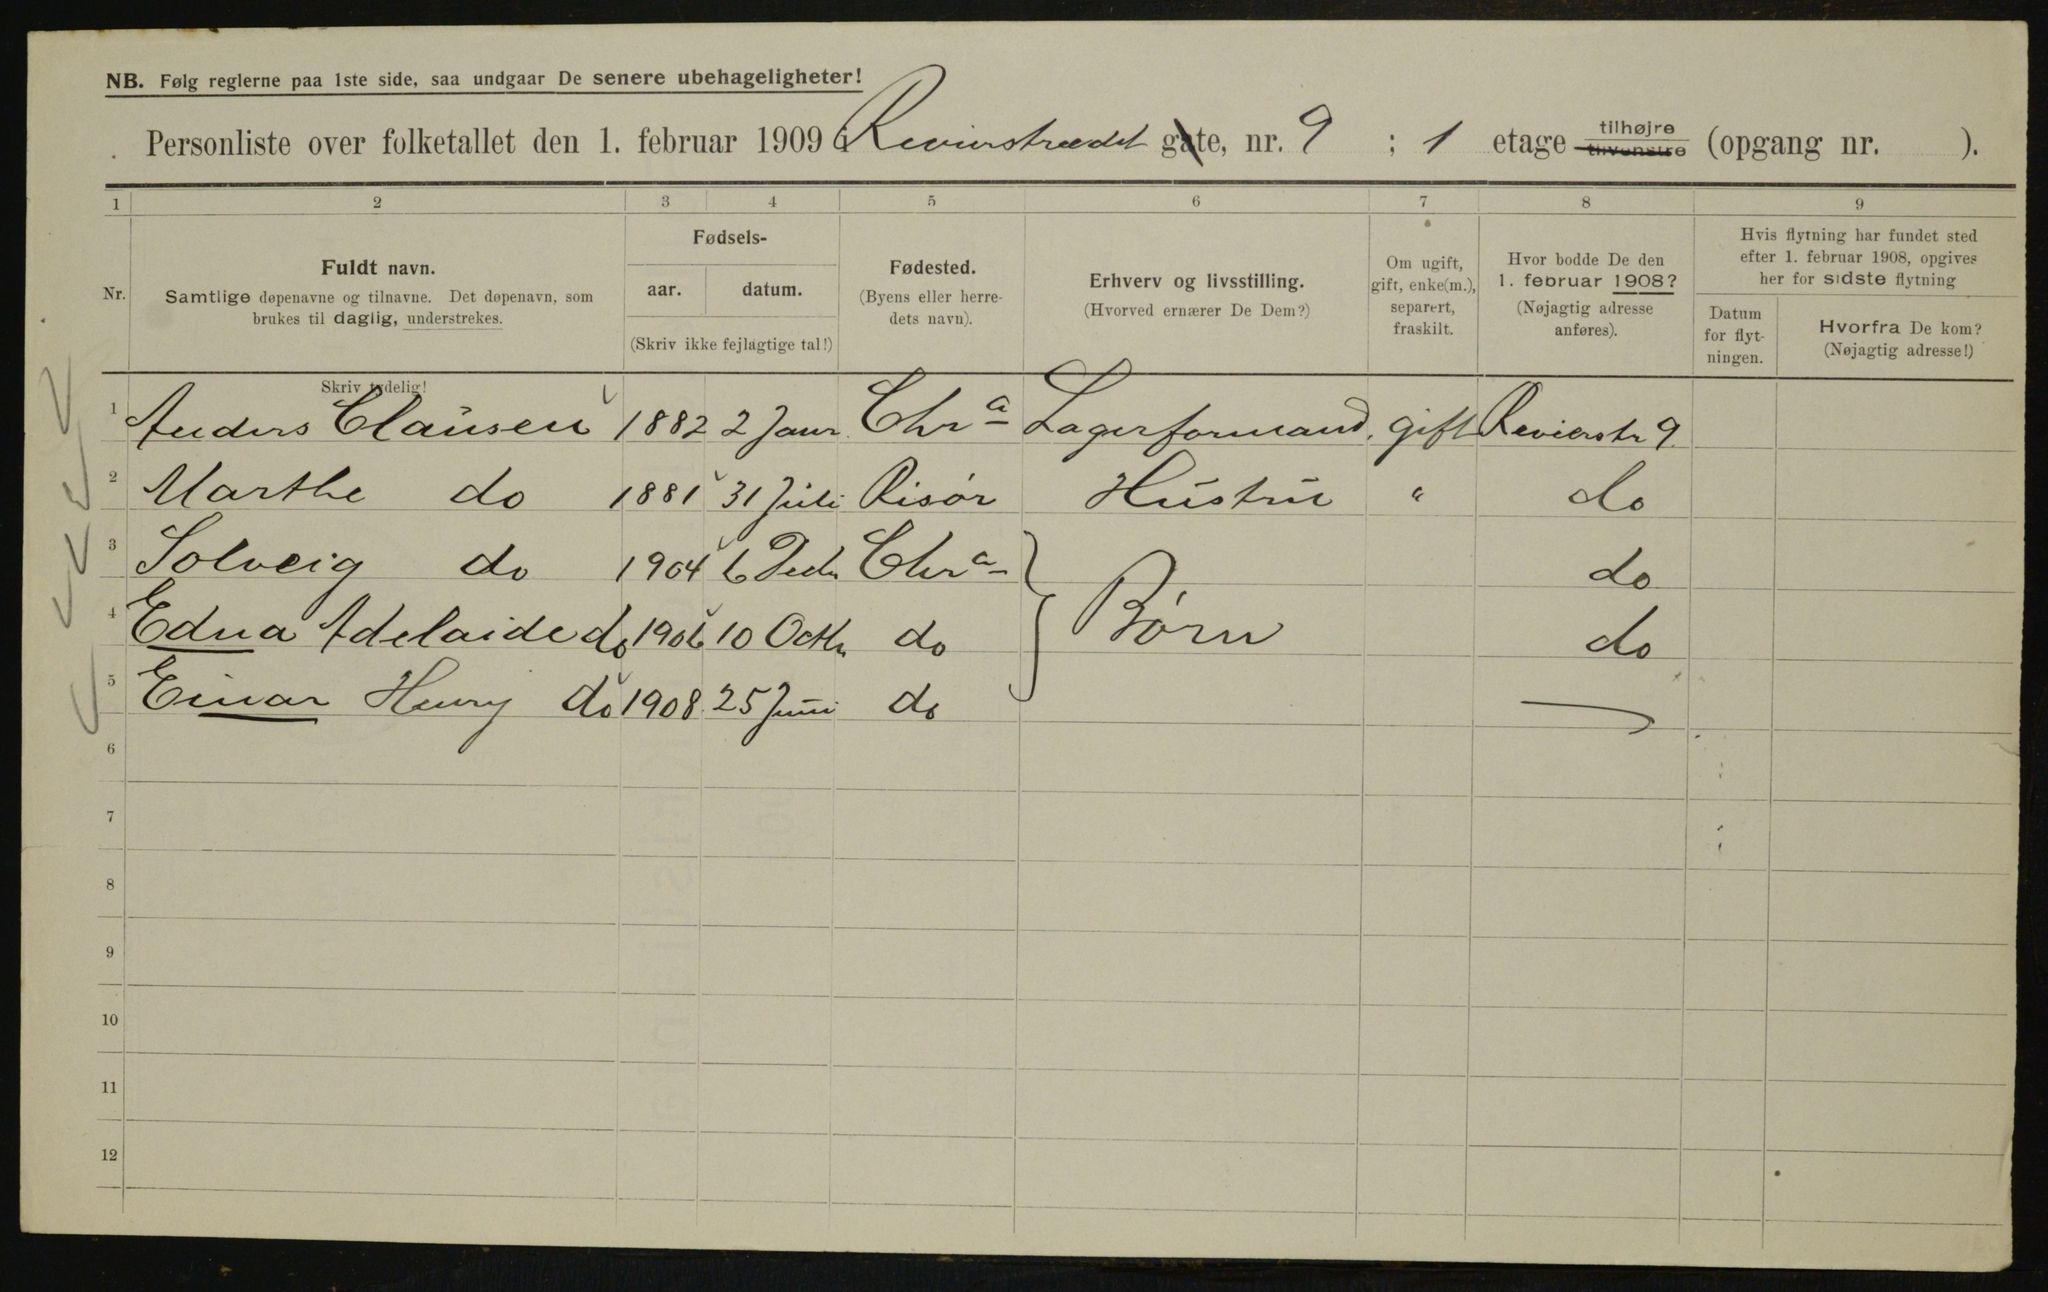 NB. Følg reglerne paa 1ste side, saa undgaar De senere ubehageligheter!
Personliste over folketallet den 1. februar 1909 i Revierstrædet gate, nr. 9 ; 1 etage tilhøjre tilvenstre (opgang nr. ).
1 2 3 4 5 6 7 8 9
Nr.
Fuldt navn.
Samtlige døpenavne og tilnavne. Det døpenavn, som
brukes til daglig, understrekes.
Skriv tydelig!
Fødsels-
aar. datum.
(Skriv ikke fejlagtige tal!)
Fødested.
(Byens eller herre-
dets navn).
Erhverv og livsstilling.
(Hvorved ernærer De Dem?)
Om ugift,
gift, enke(m.),
separert,
fraskilt.
Hvor bodde De den
1. februar 1908?
(Nøjagtig adresse
anføres).
Hvis flytning har fundet sted
efter 1. februar 1908, opgives
her for sidste flytning
Datum
for flyt-
ningen.
Hvorfra De kom?
(Nøjagtig adresse!)
1 Anders Clausen 1882 2 Janr. Chra Lagerformand. gift Revierstr 9.
2 Marthe do 1881 31 Juli Risør Hustru " do
3 Solveig do 1904 6 Decbr Chra do
4 Edna Adelaide do 1906 10 Octbr do Børn do
5 Einar Henry do 1908 25 Juni do —
6
7
8
9
10
11
12